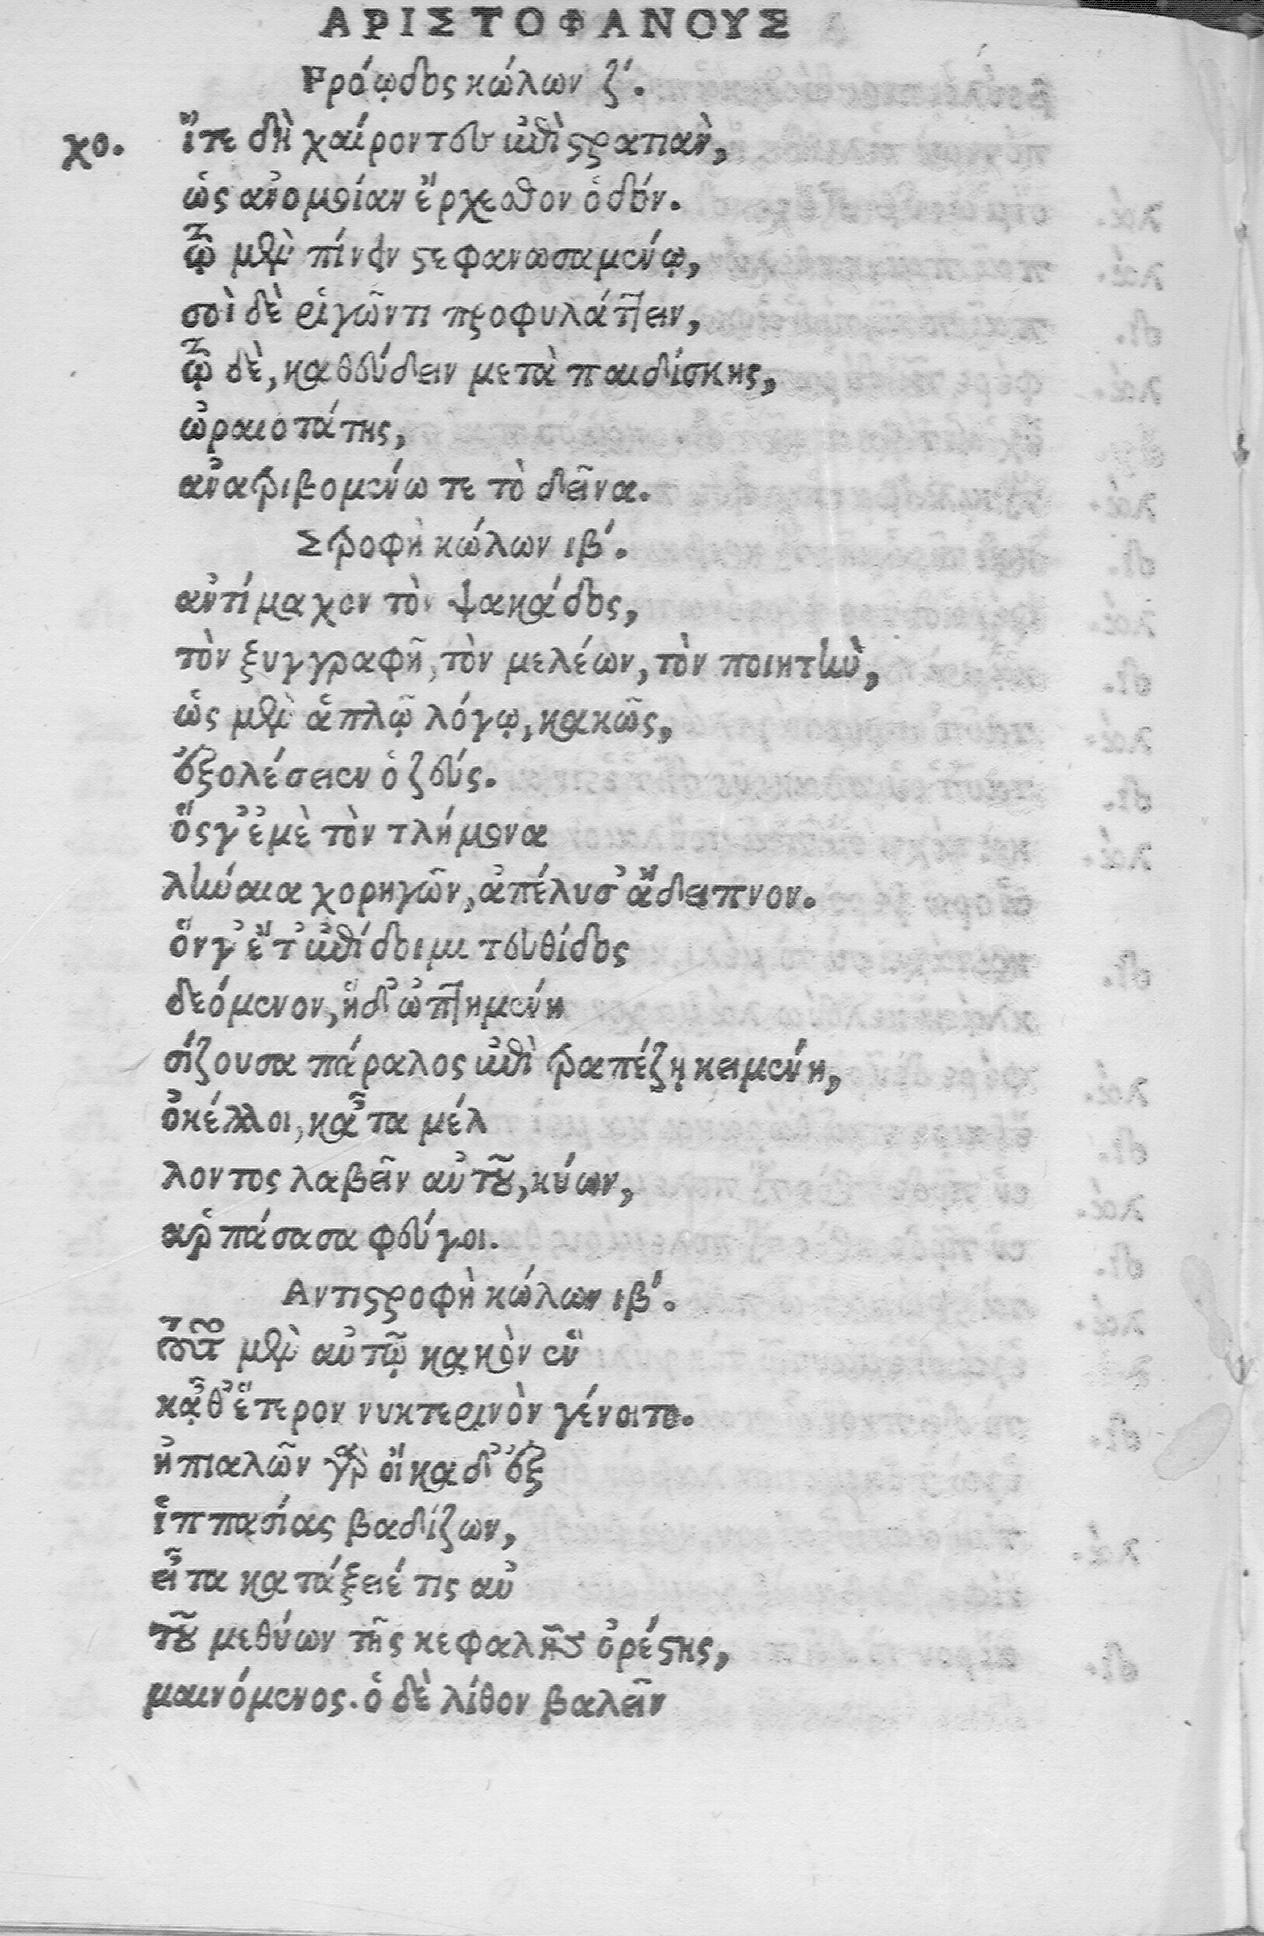 ΑΡΙΣΤΟΦΑΝΟΥΣ
Προῳδὸς κώλων ζ΄.
χο. ἴτε δὴ χαίροντες ἐπὶ στρατιὰν,
ὡς ἀνομοίαν ἔρχεσθον ὁδόν.
τῷ μὲν πίνειν στεφανωσαμένῳ,
σοὶ δὲ ῥιγῶντι προφυλάττειν,
τῷ δὲ, καθεύδειν μετὰ παιδίσκης,
ὡραιοτάτης,
ἀνατριβομένω τε τὸ δεῖνα.
Στροφὴ κώλων ιβ΄.
ἀντίμαχον τὸν ψακάδος,
τὸν ξυγγραφῆ, τὸν μελέων, τὸν ποιητὴν,
ὡς μὲν ἁπλῷ λόγῳ, κακῶς,
ἐξολέσειεν ὁ ζεύς.
ὅς γ' ἐμὲ τὸν τλήμονα
λήναια χορηγῶν, ἀπέλυσ' ἄδειπνον.
ὅν γ' ἔτ' ἐπίδοιμι τευθίδος
δεόμενον, ἡ δ' ὠπτημένη
σίζουσα πάραλος ἐπὶ τραπέζῃ κειμένη,
ὀκέλλοι, κᾆτα μέλ
λοντος λαβεῖν αὐτοῦ, κύων,
ἁρπάσασα φεύγοι.
Αντιστροφὴ κώλων ιβ΄.
τοῦτο μὲν αὐτῷ κακὸν ἓν
κᾆθ' ἕτερον νυκτερινὸν γένοιτο.
ἠπιαλῶν γὰρ οἴκαδ' ἐξ
ἱππασίας βαδίζων,
εἶτα κατάξειέ τις αὐ
τοῦ μεθύων τῆς κεφαλῆς ὀρέστης,
μαινόμενος. ὁ δὲ λίθον βαλεῖν